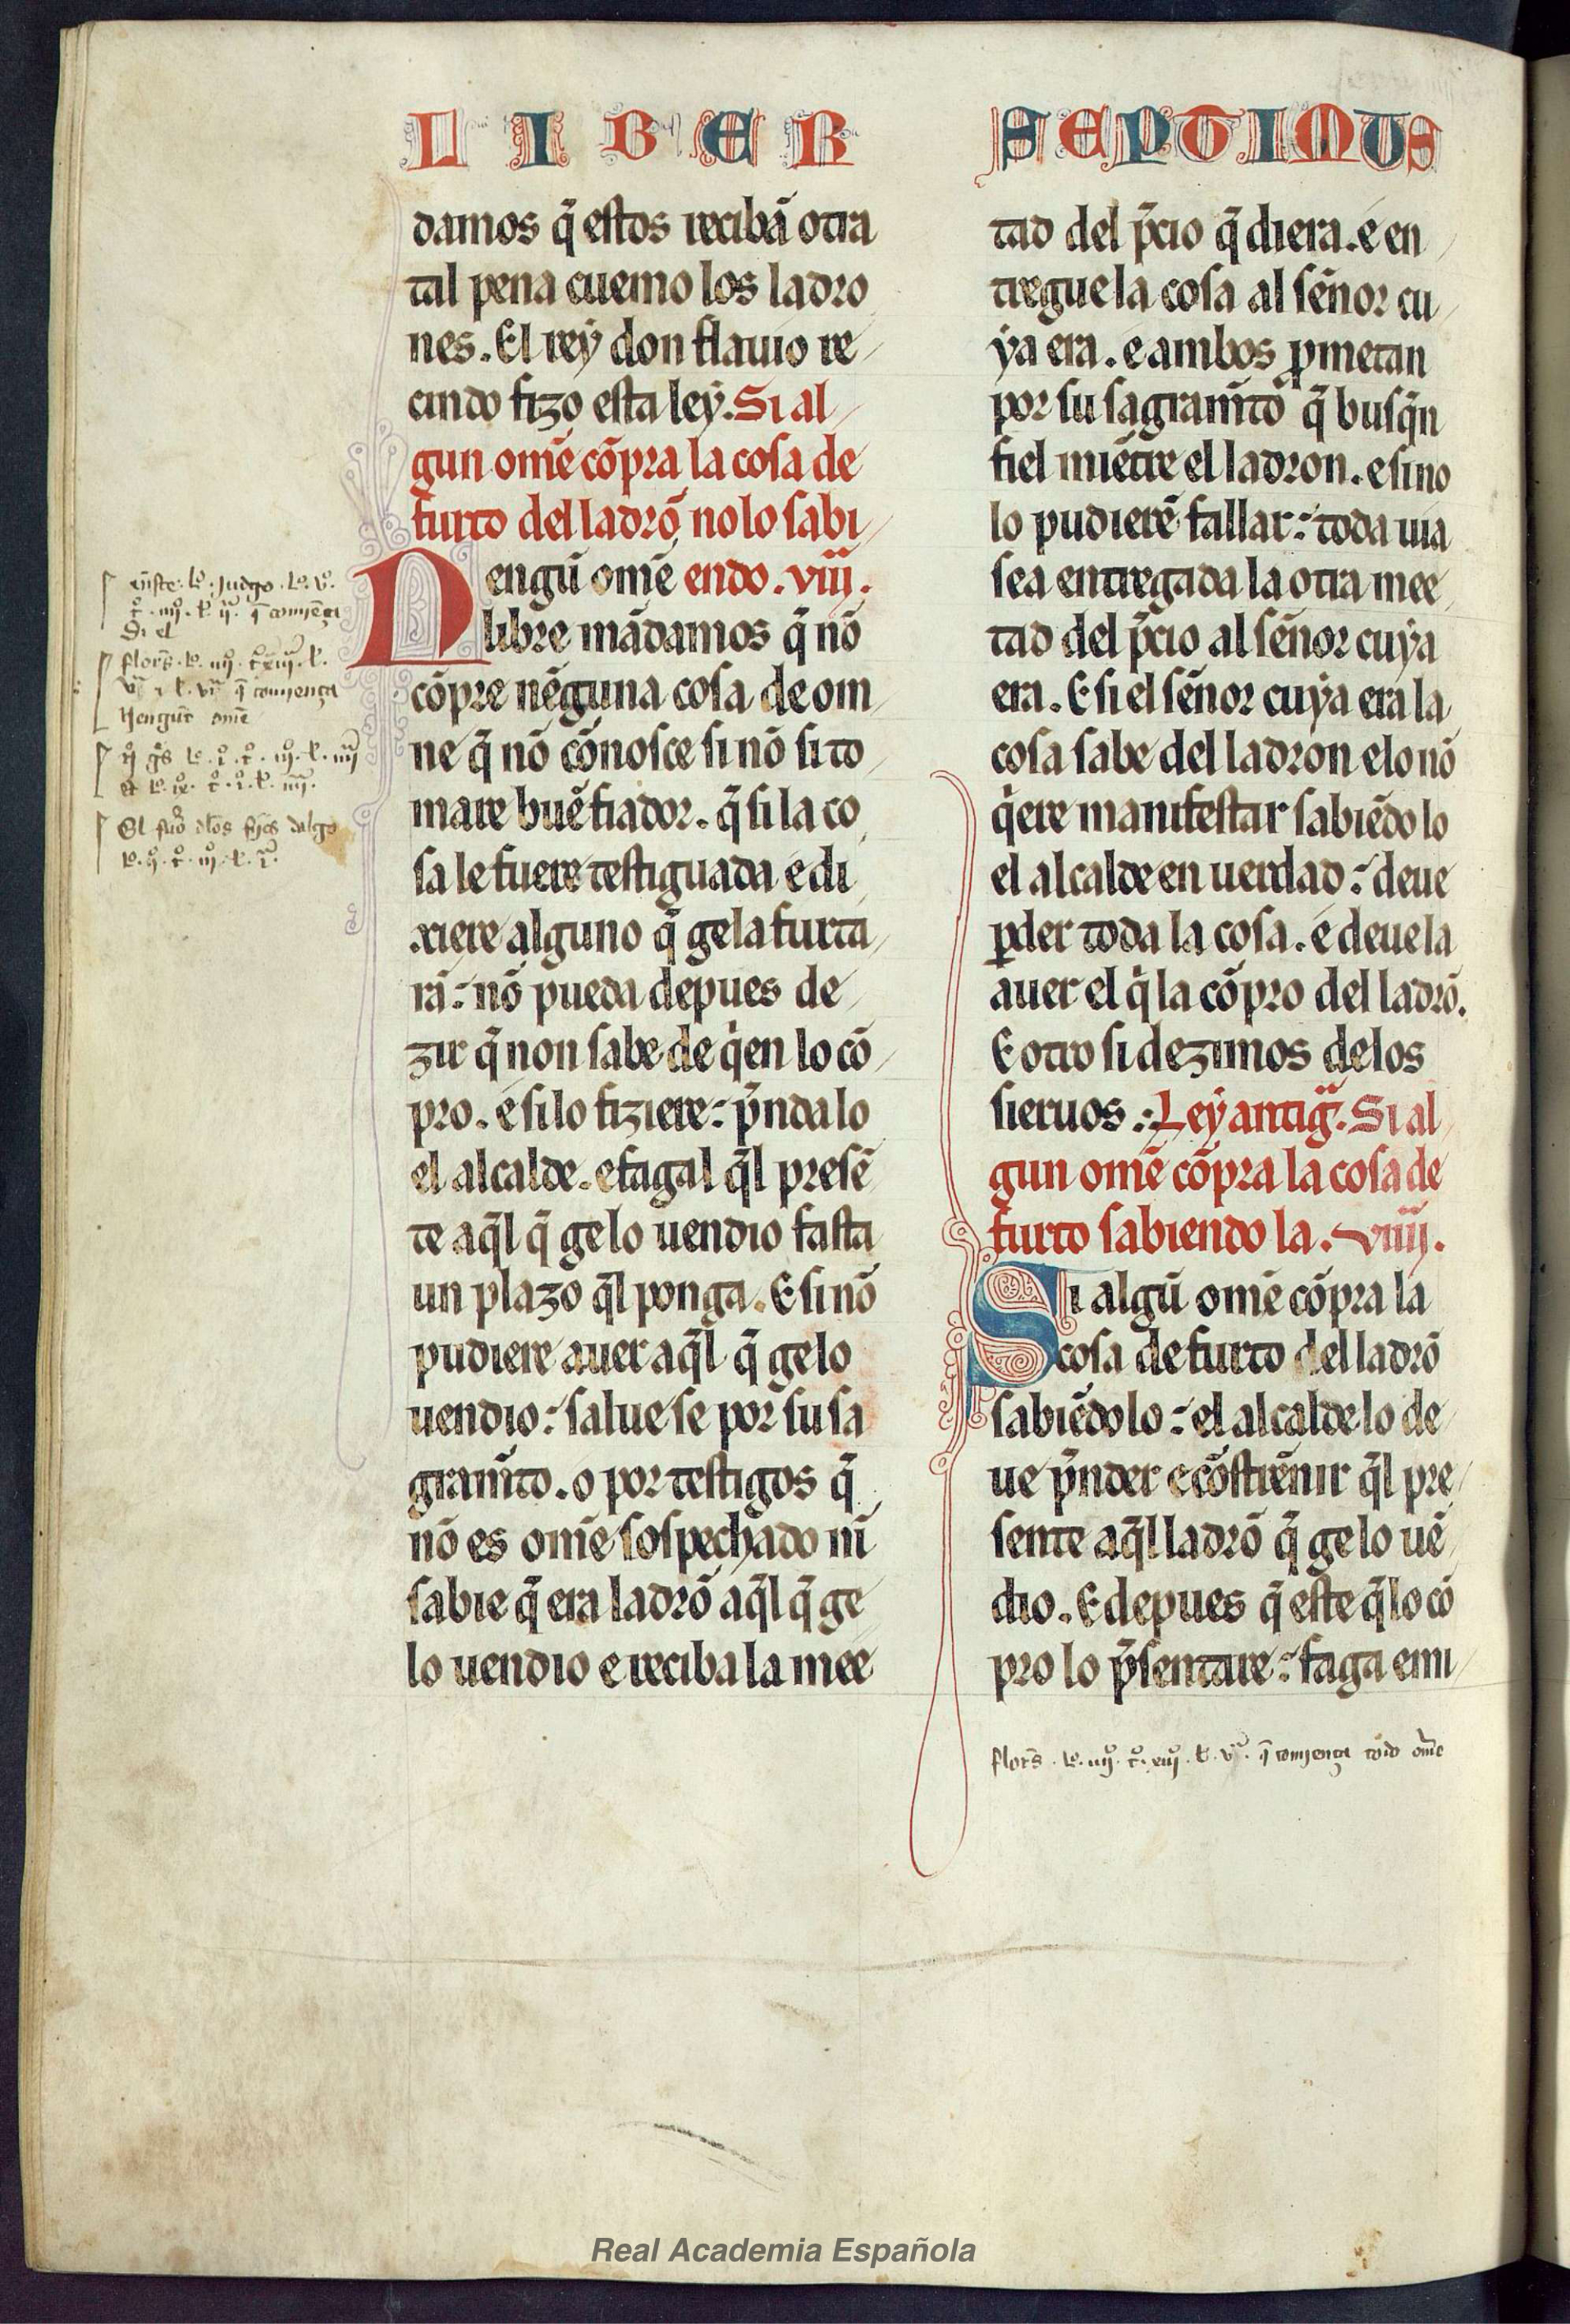 LIBER
SEPTIMUS
damos q̄ estos recibā otra
tal pena cuemo los ladro
nes. El rey don flauio re
cindo fizo esta ley. Si al
gun om̄e cōpra la cosa de
furto del ladrō nolo sabi
Nengū om̄e endo. viii.
libre mādamos q̄ nō
cōpre nēguna cosa de om
ne q̄ nō cōnosce si nō si to
mare buē fiador. q̄ si la co
sa le fuere testiguada e di
xiere alguno q̄ gela furta
rā: nō pueda depues de
zir q̄ non sabe de q̇en lo cō
pro. e si lo fiziere: p̄nda lo
el alcalde. e fagal q̄l presē
te aq̄l q̄ gelo uendio fasta
un plazo q̄l ponga. E si nō
pudiere auer aq̄l q̄ gelo
uendio: salue se por su sa
gram̄to. o por testigos q̄
nō es om̄e sospechado nī
sabie q̄ era ladrō aq̄l q̄ ge
lo uendio e reciba la mee
tad del p̄cio q̄ diera. e en
tregue la cosa al sēnor cu
ya era. e ambos ꝓmetan
por su sagram̄to q̄ busq̄n
fiel miētre el ladron. e si no
lo pudierē fallar: toda uia
sea entregada la otra mee
tad del p̄cio al sēnor cuya
era. E si el sēnor cuya era la
cosa sabe del ladron e lo nō
q̇ere manifestar sabiēdo lo
el alcalde en uerdad: deue
ꝑder toda la cosa. e deue la
auer el q̇ la cōpro del ladrō.
E otro si dezimos delos
sieruos: Ley antigᷓ. Si al
gun om̄e cōpra la cosa de
furto sabiendo la. viiii.
Si algū om̄e cōpra la
cosa de furto del ladrō
sabiēdo lo: el alcalde lo de
ue p̄nder e cōstrēnir q̄l pre
sente aq̄l ladrō q̄ gelo uē
dio. E depues q̄ este q̄ lo cō
pro lo p̄sentare: faga emi
flor̄s. lº. iiijº. tº. xiijº. l. vª. q̄ comjença todo om̄e
Real Academia Española